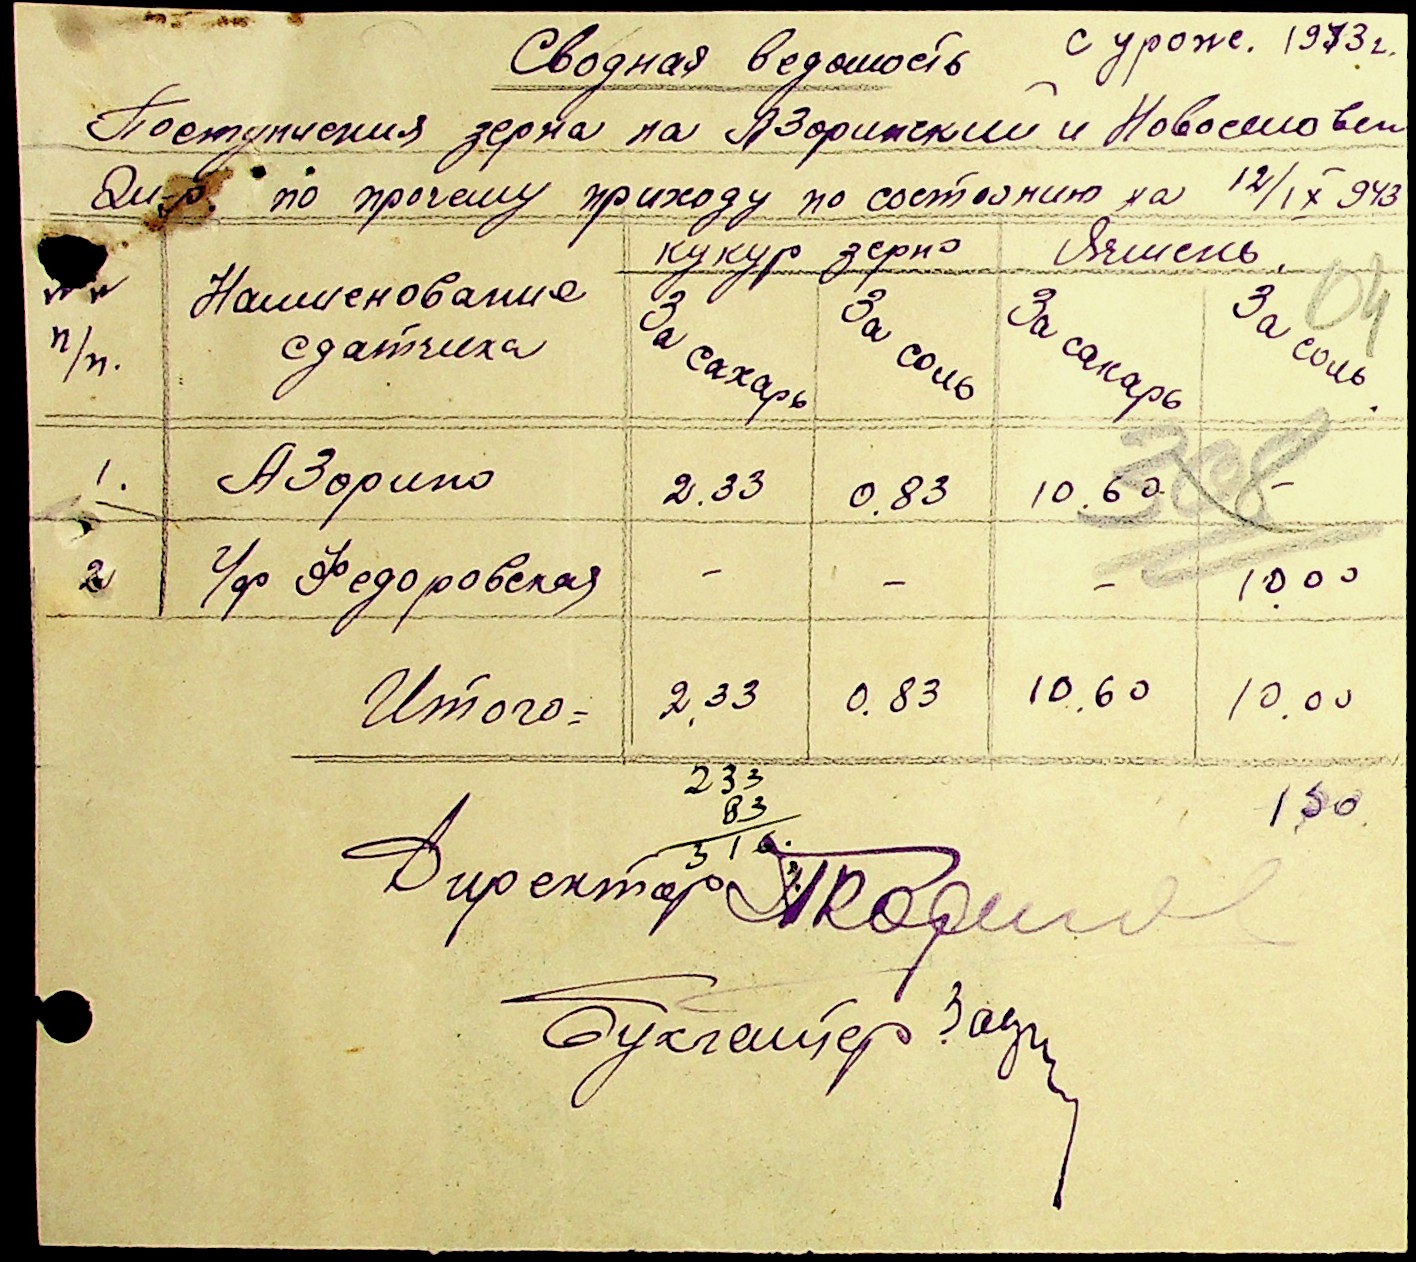 Сводная ведомость с урож. 1943 г.
Поступления зерна на Азоринский и Новосмовен
по прочему приходу по состоянию на 12/IX 943
№ № п/п. Наименование сдатчика кукур зерно Ячмень.
За сахарь За соль За сахарь За соль.
04
1. Азорино 2.33 0.83 10.60 -
308
2 Ч/ф Федоровская - - - 10.00
Итого = 2.33 0.83 10.60 10.00
233
83
316.
Директор
Бухгалтер